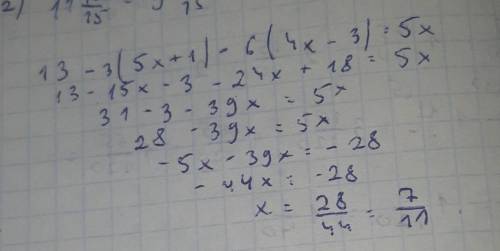 2)
13 - 3(5x+1) - 6(4x - 3) = 5x
13 - 15x - 3 - 24x + 18 = 5x
31 - 3 - 39x = 5x
28 - 39x = 5x
- 5x - 39x = - 28
- 44x = -28
x = 28/44 = 7/11